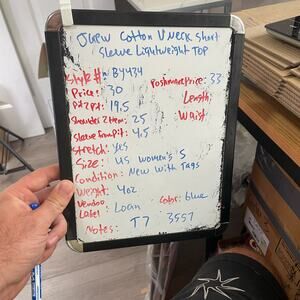 Jcrew Cotton V Neck short
Sleeve Lightweight Top
Style #: BY434
Price: 30 Poshmark Price: 33
Pit 2 Pit: 19.5 Length:
Shoulder 2 Hem: 25 Waist
Sleeve from pit: 4.5
Stretch: yes
Size: US women's S
Condition: New with Tags
Weight: 4oz
Vendoo Label Loan Color: blue
Notes: T7 3557